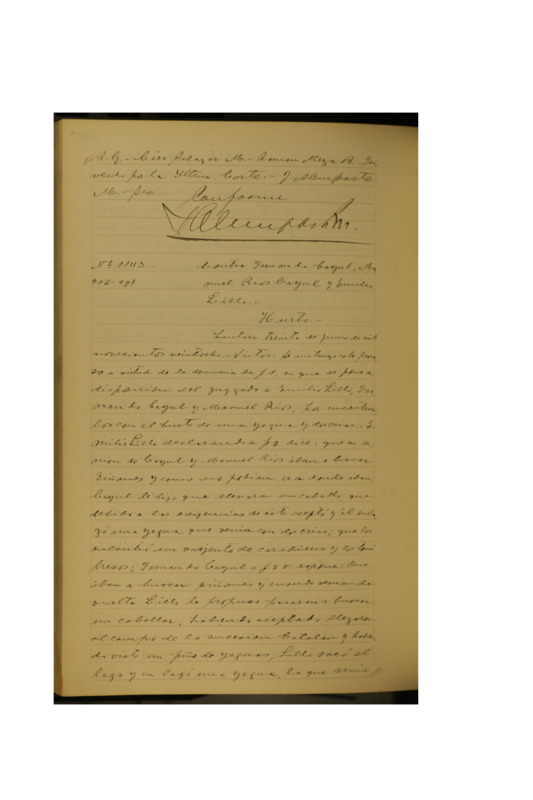 R. G.- Ciro Salazar M.- Ramon Meza R. Pro
veido pa la Iltma. Corte.- J Alemparte
M.- Sec.
Conforme
JAlemparte M.
Nº 1113.-
Contra Fernando Cayul, Ma
nuel Rios Cayul y Emilio
Lillo.-
Hurto.-
Lautaro treinta de junio de mil
novecientos veintiocho.- Vistos: Se instruye este proce
so a virtud de la denuncia de f 1, en que se pone a
disposicion del juzgado a Emilio Lillo, Fer
nando Cayul y Manuel Rios, por
los con el hurto de una yegua y dos crias.- E
milio Lillo declarando a f 2 dice: que en u
nion de Cayul y Manuel Rios iban a buscar
piñones y como no podian ir a donde iban
Cayul le dijo que llevaran un caballo que
debido a las exigencias de este acepto y el enla
zó una yegua que venia con dos crias; que los
encontró un sarjento de carabineros y los tomó
presos; Fernando Cayul a f 2 v. espone: Que
iban a buscar piñones y cuando venian de
vuelta Lillo le propuso pasaran a buscar
un caballar; habiendo aceptado llegaron
al campo de la sucesion Catalan y habien
do visto un piño de yeguas, Lillo sacó el
lazo y enlazó una yegua, la que venia //